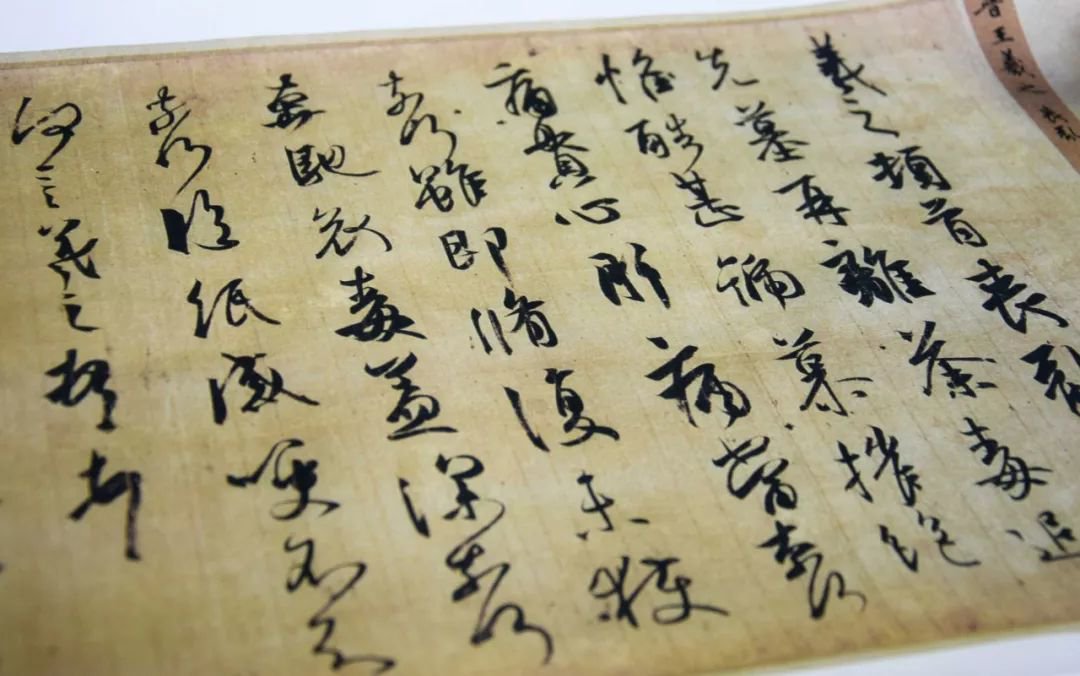 晉王羲之喪亂
羲之頓首喪亂
先墓再離荼毒追
惟酷甚號慕摧絕
痛貫心肝痛當奈何
奈何雖即脩復未獲
奔馳哀毒益深奈何
奈何臨紙感哽不知
何言羲之頓首